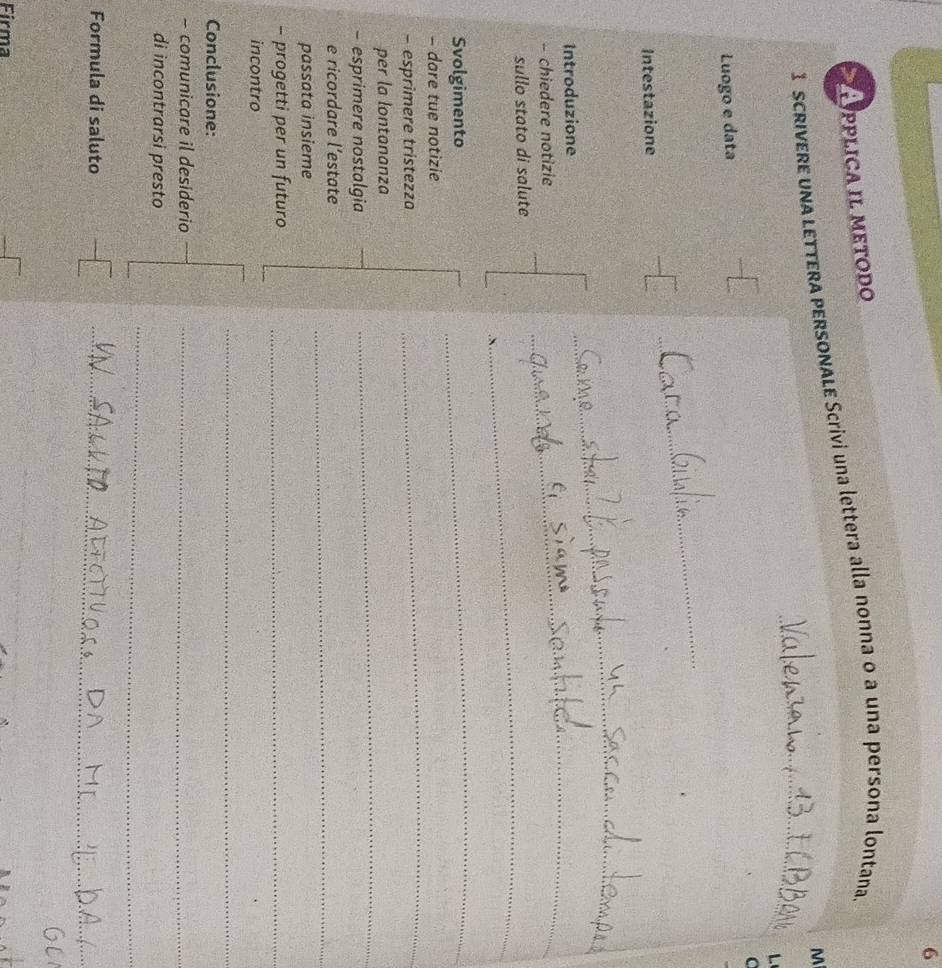 6
> APPLICA IL METODO
1 SCRIVERE UNA LETTERA PERSONALE Scrivi una lettera alla nonna o a una persona lontana.
M
Luogo e data
Valenzano, 13 FEBBRAIO
Intestazione
Cara Giulia
Introduzione
- chiedere notizie
sullo stato di salute
Come stai? È passato un sacco di tempo
quando ci siamo sentite
Svolgimento
- dare tue notizie
- esprimere tristezza
per la lontananza
- esprimere nostalgia
e ricordare l'estate
passata insieme
- progetti per un futuro
incontro
Conclusione:
- comunicare il desiderio
di incontrarsi presto
Formula di saluto
UN SALUTO AFFETTUOSO DA ME E DA
Firma